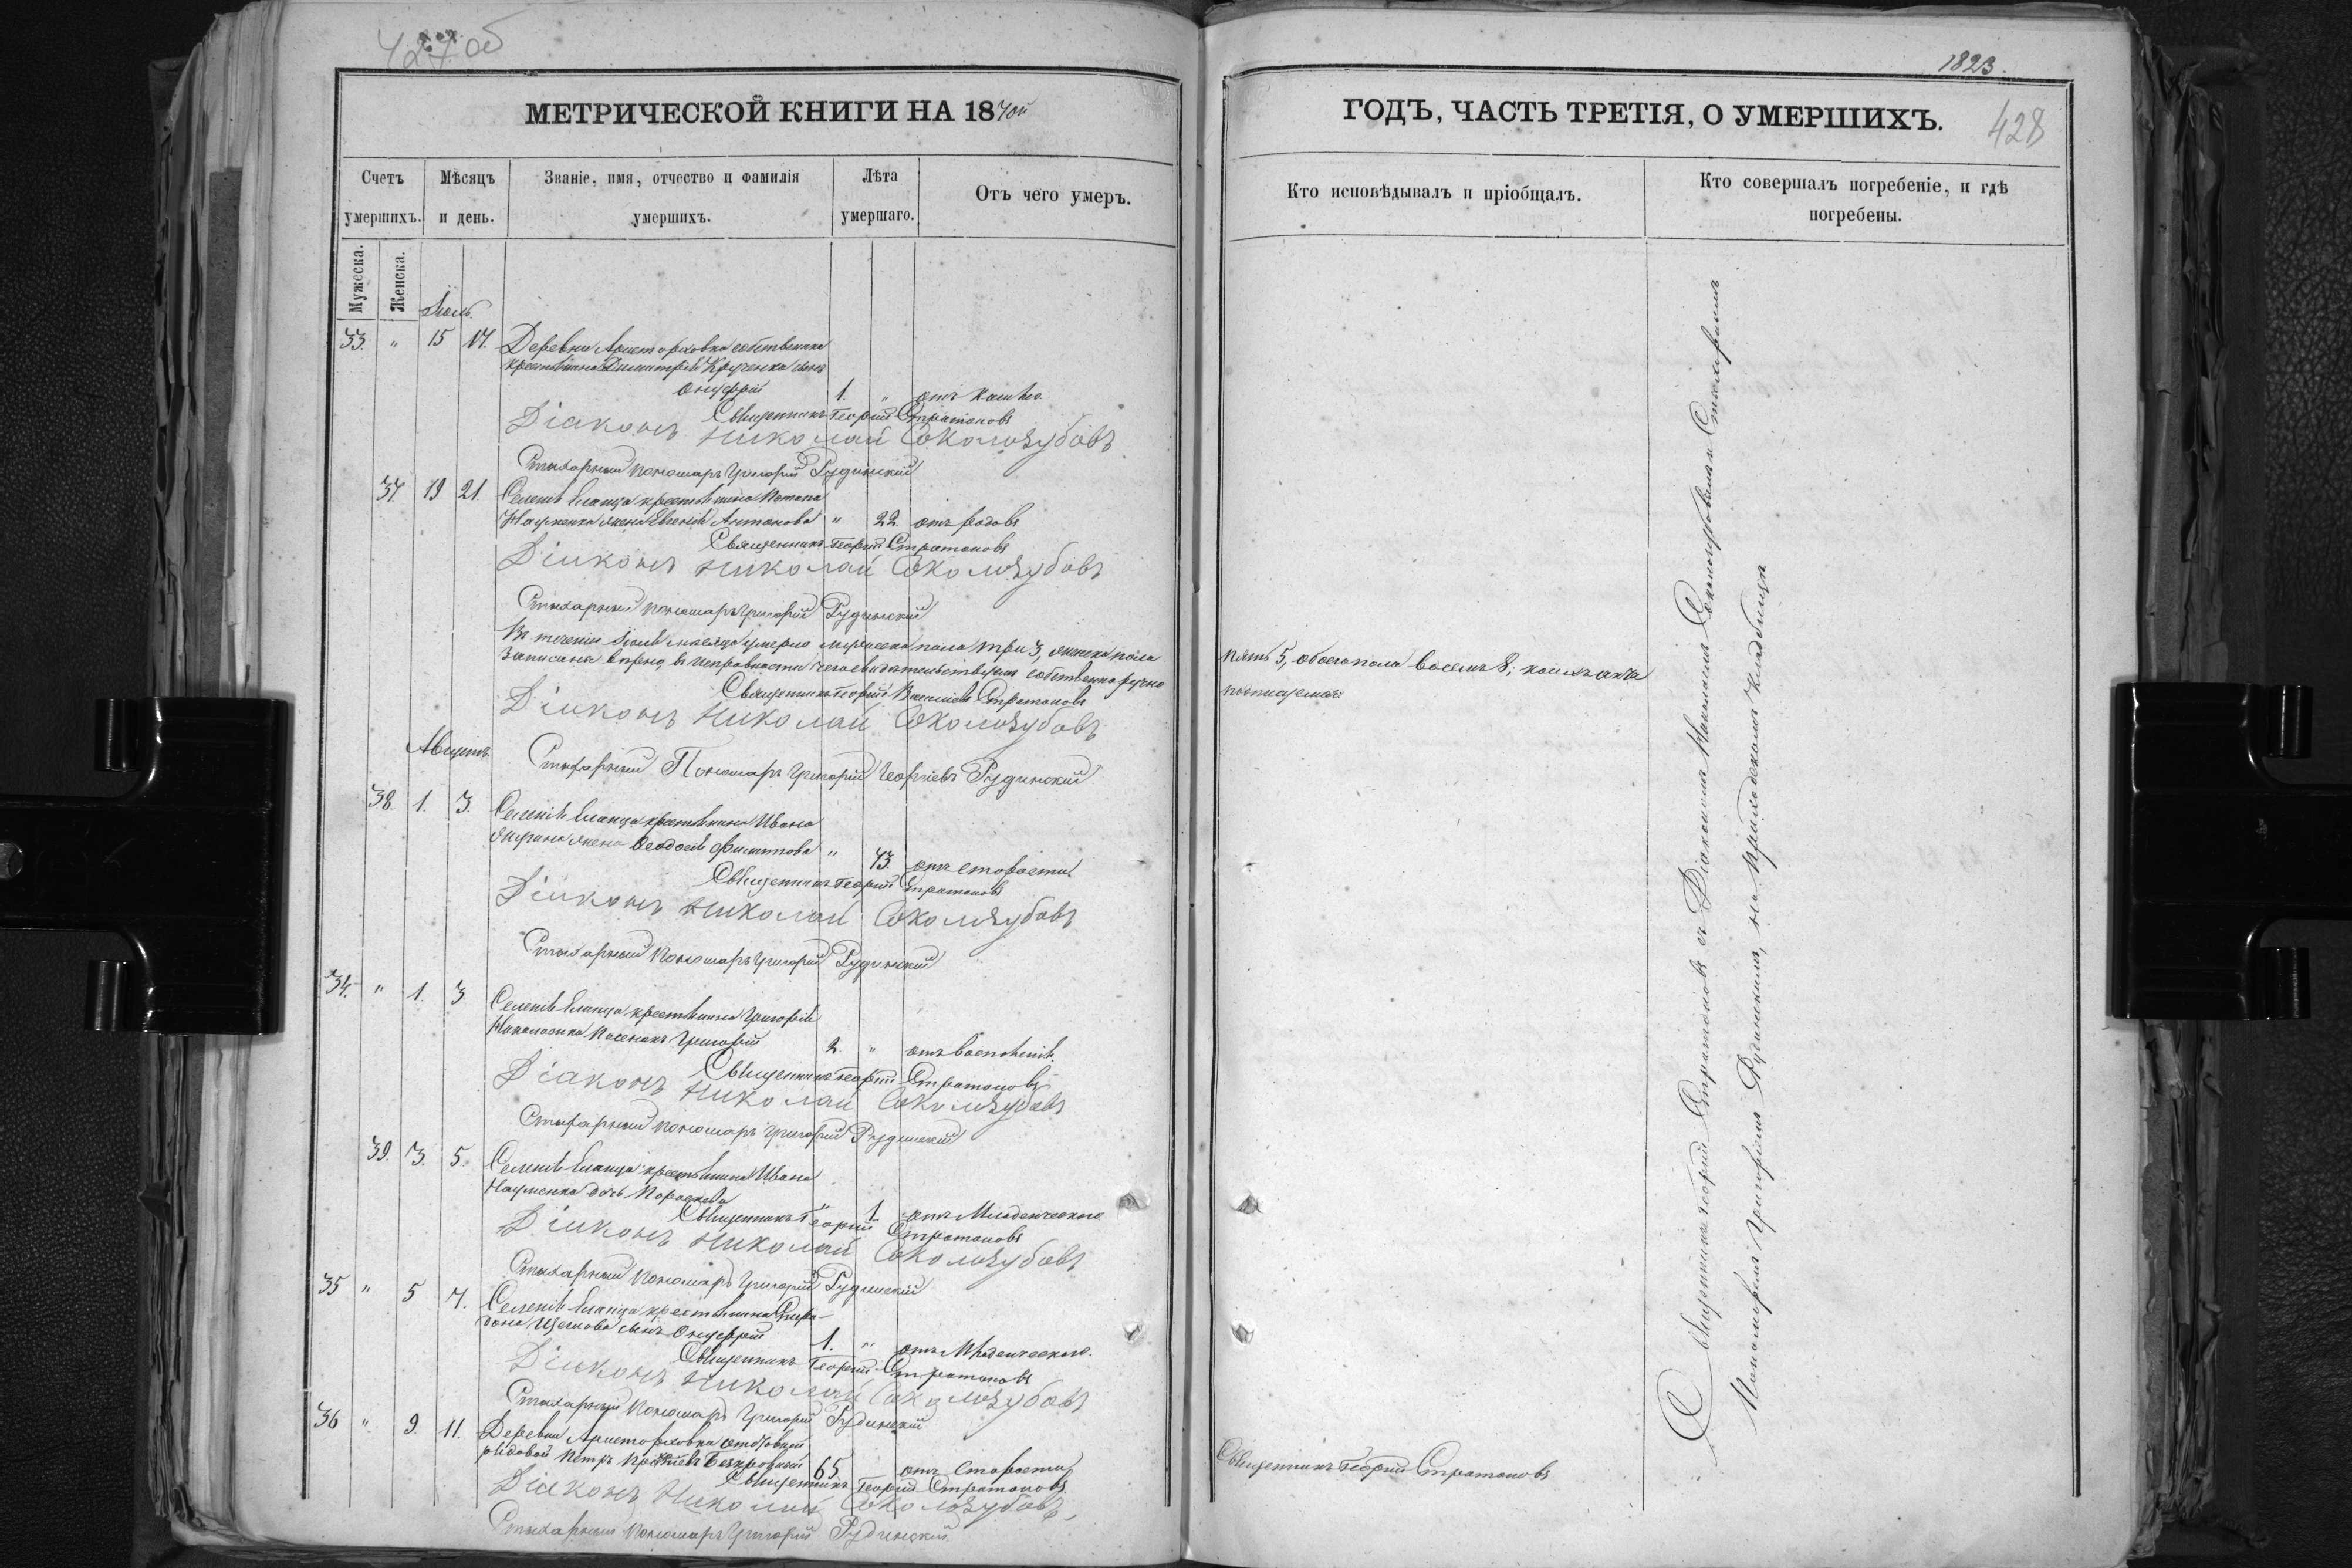 427 об
МЕТРИЧЕСКОЙ КНИГИ НА 1870й
Счетъ умершихъ.
Мѣсяцъ и день.
Званіе, имя, отчество и фамилія умершихъ.
Лѣта умершаго.
Отъ чего умеръ.
Мужеска.
Женска.
Іюль.
33. " 15 17. Деревни собственника
крестьянина Димитрія сынъ
Онуфрій 1. " отъ кашлю
Священникъ Георгій Стратоновъ
Діаконъ Николай Соколозубовъ
Стихарный пономарь Григорій Рудинскій
37 19 21. Селенія Еланца крестьянина Потапа
Науменка жена Евгенія Антонова " 22 отъ родовъ
Священникъ Георгій Стратоновъ
Діаконъ Николай Соколозубовъ
Стихарный пономарь Григорій Рудинскій
Въ теченіи Іюля мѣсяца умерло мужеска пола три 3, женска пола
записана въ исправности чего свидѣтельствуемъ собственноручно
Священникъ Георгій Стратоновъ
Діаконъ Николай Соколозубовъ
Августъ
Стихарный Пономарь Григорій Георгіевъ Рудинскій
38. 1. 3. Селенія Еланца крестьянина Ивана
жена Феодосія Филиппова " 73 отъ старости
Священникъ Георгій Стратоновъ
Діаконъ Николай Соколозубовъ
Стихарный пономарь Григорій Рудинскій
34. " 1. 3 Селенія Еланца крестьянина Григорія
Николаенка Григорій 2. " отъ воспаленія
Священникъ Георгій Стратоновъ
Діаконъ Николай Соколозубовъ
Стихарный пономарь Григорій Рудинскій
39. 3. 5. Селенія Еланца крестьянина Ивана
Науменка дочь Параскева " 1 отъ Младенческаго
Священникъ Георгій Стратоновъ
Діаконъ Николай Соколозубовъ
Стихарный пономарь Григорій Рудинскій
35 " 5 7. Селенія Еланца крестьянина Спири-
дона сынъ Онуфрій 1. " отъ Младенческаго.
Священникъ Георгій Стратоновъ
Діаконъ Николай Соколозубовъ
Стихарный пономарь Григорій Рудинскій
36 " 9. 11. Деревни отставной
рядовой Петръ 65 отъ Старости
Священникъ Георгій Стратоновъ
Діаконъ Николай Соколозубовъ
Стихарный пономарь Григорій Рудинскій
1823.
428
ГОДЪ, ЧАСТЬ ТРЕТІЯ, О УМЕРШИХЪ.
Кто исповѣдывалъ и пріобщалъ.
Кто совершалъ погребеніе, и гдѣ погребены.
пять 5, обоего пола восемь 8;
подписуемся:
Священникъ Георгій Стратоновъ съ Діакономъ Николаемъ Соколозубовымъ и Стихарнымъ
Пономаремъ Григоріемъ Рудинскимъ, на приходскомъ кладбищѣ
Священникъ Георгій Стратоновъ